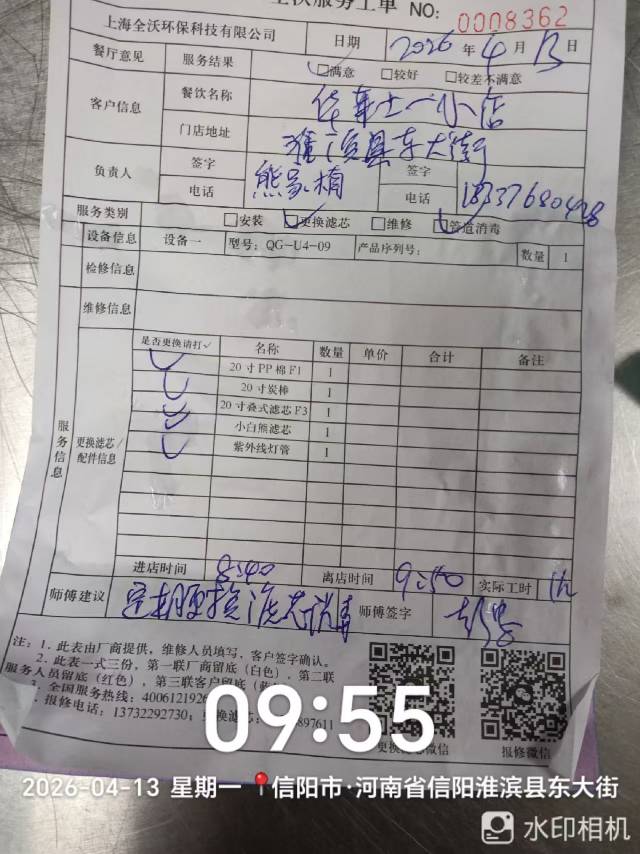 全沃服务工单 NO: 0008362
上海全沃环保科技有限公司 日期 2026年4月13日
餐厅意见 服务结果 满意 较好 较差不满意
客户信息 餐饮名称 华莱士一小店
门店地址 淮滨县东大街
负责人 签字 签字
电话 电话
服务类别 安装 更换滤芯 维修 管道消毒
设备信息 设备一 型号: QG-U4-09 产品序列号: 数量 1
检修信息
维修信息
服务信息
更换滤芯/配件信息
是否更换请打✓ 名称 数量 单价 合计 备注
20寸PP棉F1 1
20寸炭棒 1
20寸叠式滤芯F3 1
小白熊滤芯 1
紫外线灯管 1
进店时间 8:40 离店时间 9:50 实际工时 1h
师傅建议 定期更换滤芯消毒 师傅签字
注: 1. 此表由厂商提供, 维修人员填写, 客户签字确认。
2. 此表一式三份, 第一联厂商留底(白色), 第二联
服务人员留底(红色), 第三联客户留底
3. 全国服务热线: 4006121926
报修电话: 13732292730;
897611
更换滤芯微信 报修微信
09:55
2026-04-13 星期一 信阳市·河南省信阳淮滨县东大街
水印相机